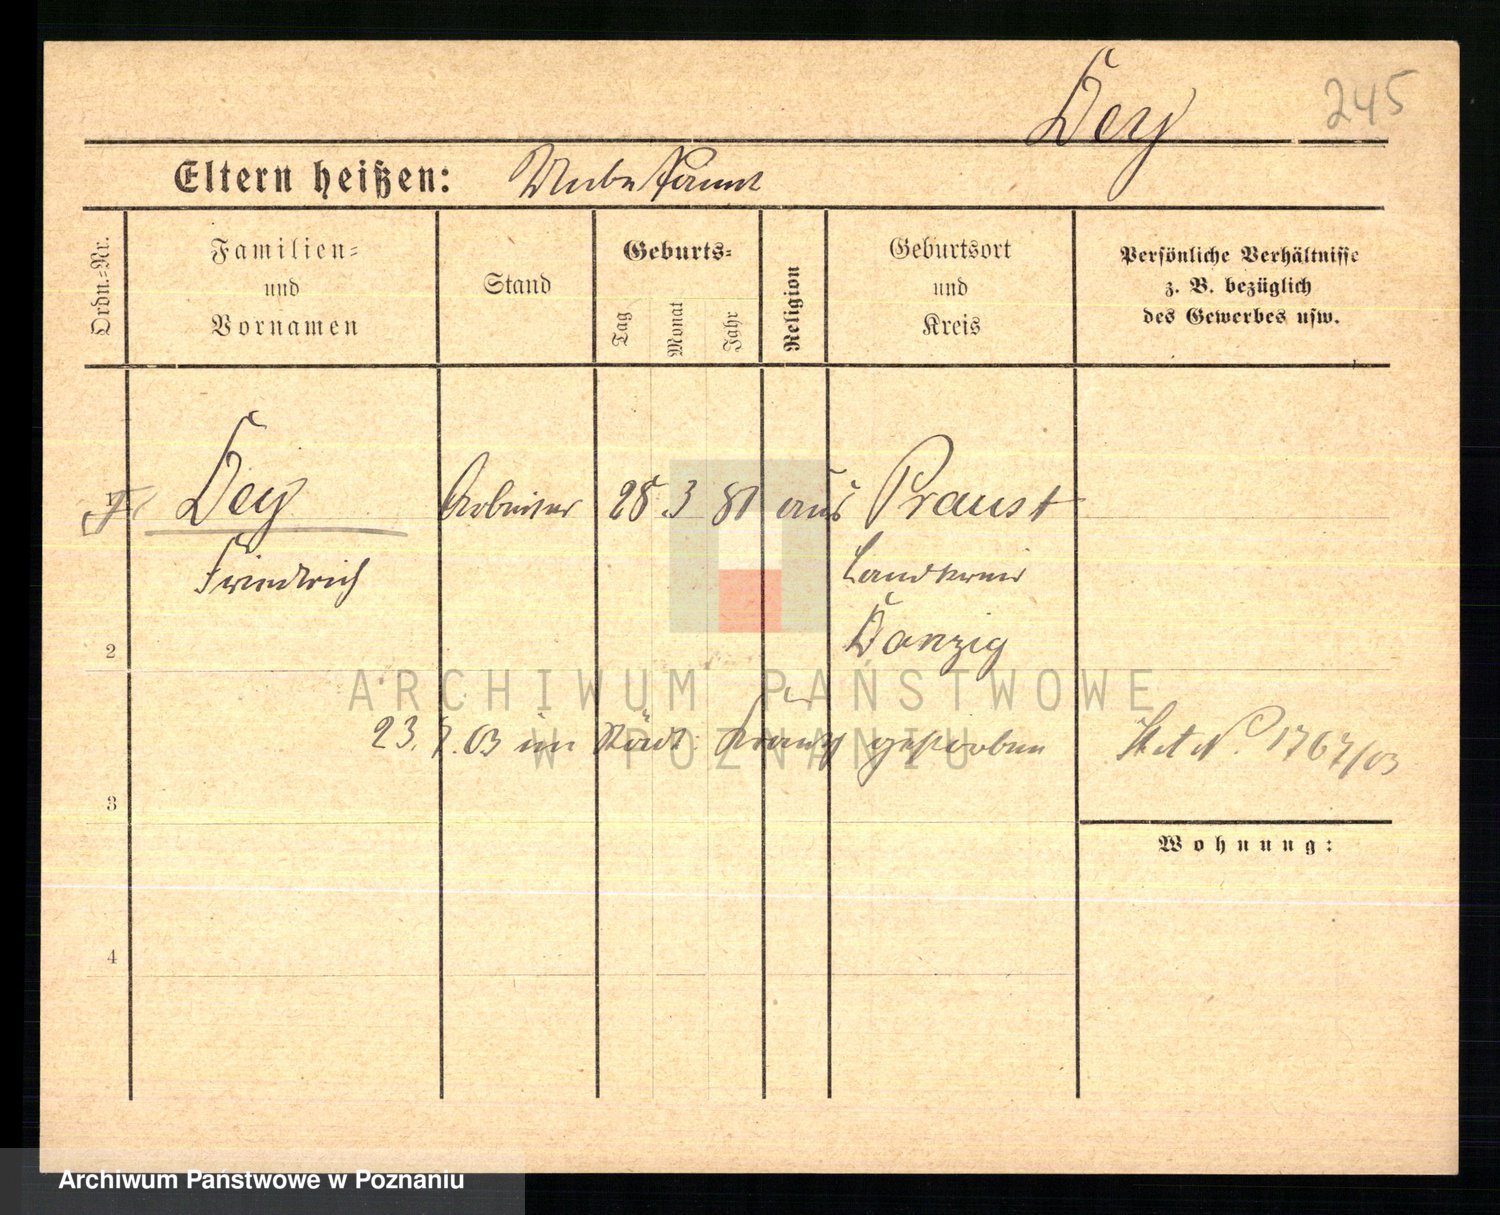 Dey
245
Eltern heißen: Unbekannt
Ordn.=Nr.
Familien=
und
Vornamen
Stand
Geburts=
Tag
Monat
Jahr
Religion
Geburtsort
und
Kreis
Persönliche Verhältnisse
z. B. bezüglich
des Gewerbes usw.
Dey Arbeiter 28. 3 81 aus Praust
Friedrich Landkreis
2 Danzig
ARCHIWUM PAŃSTWOWE
W POZNANIU
23. 7. 03 im städt. gestorben 1767/03
3
Wohnung:
4
Archiwum Państwowe w Poznaniu